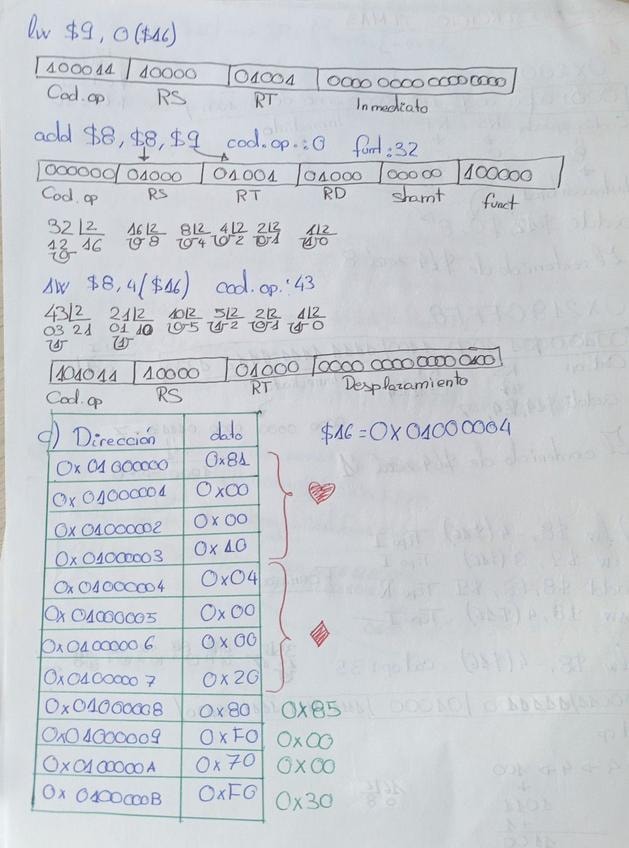 lw $9, 0($16)
100011 10000 01001 0000 0000 0000 0000
Cod.op RS RT Inmediato
add $8, $8, $9 cod.op.:0 funt:32
000000 01000 01001 01000 00000 100000
Cod.op RS RT RD shamt funct
32 2 16 2 8 2 4 2 2 2 1 2
12 16 0 8 0 4 0 2 0 1 1 0
0
sw $8, 4($16) cod.op.:43
43 2 21 2 10 2 5 2 2 2 1 2
03 21 01 10 0 5 1 2 0 1 1 0
1 1
101011 10000 01000 0000 0000 0000 0100
Cod.op RS RT Desplazamiento
c) Dirección dato $16 = 0x01000004
0x01000000 0x81
0x01000001 0x00
0x01000002 0x00
0x01000003 0x10
0x01000004 0x04
0x01000005 0x00
0x01000006 0x00
0x01000007 0x20
0x01000008 0x80 0x85
0x01000009 0xF0 0x00
0x0100000A 0x70 0x00
0x0100000B 0xF0 0x30